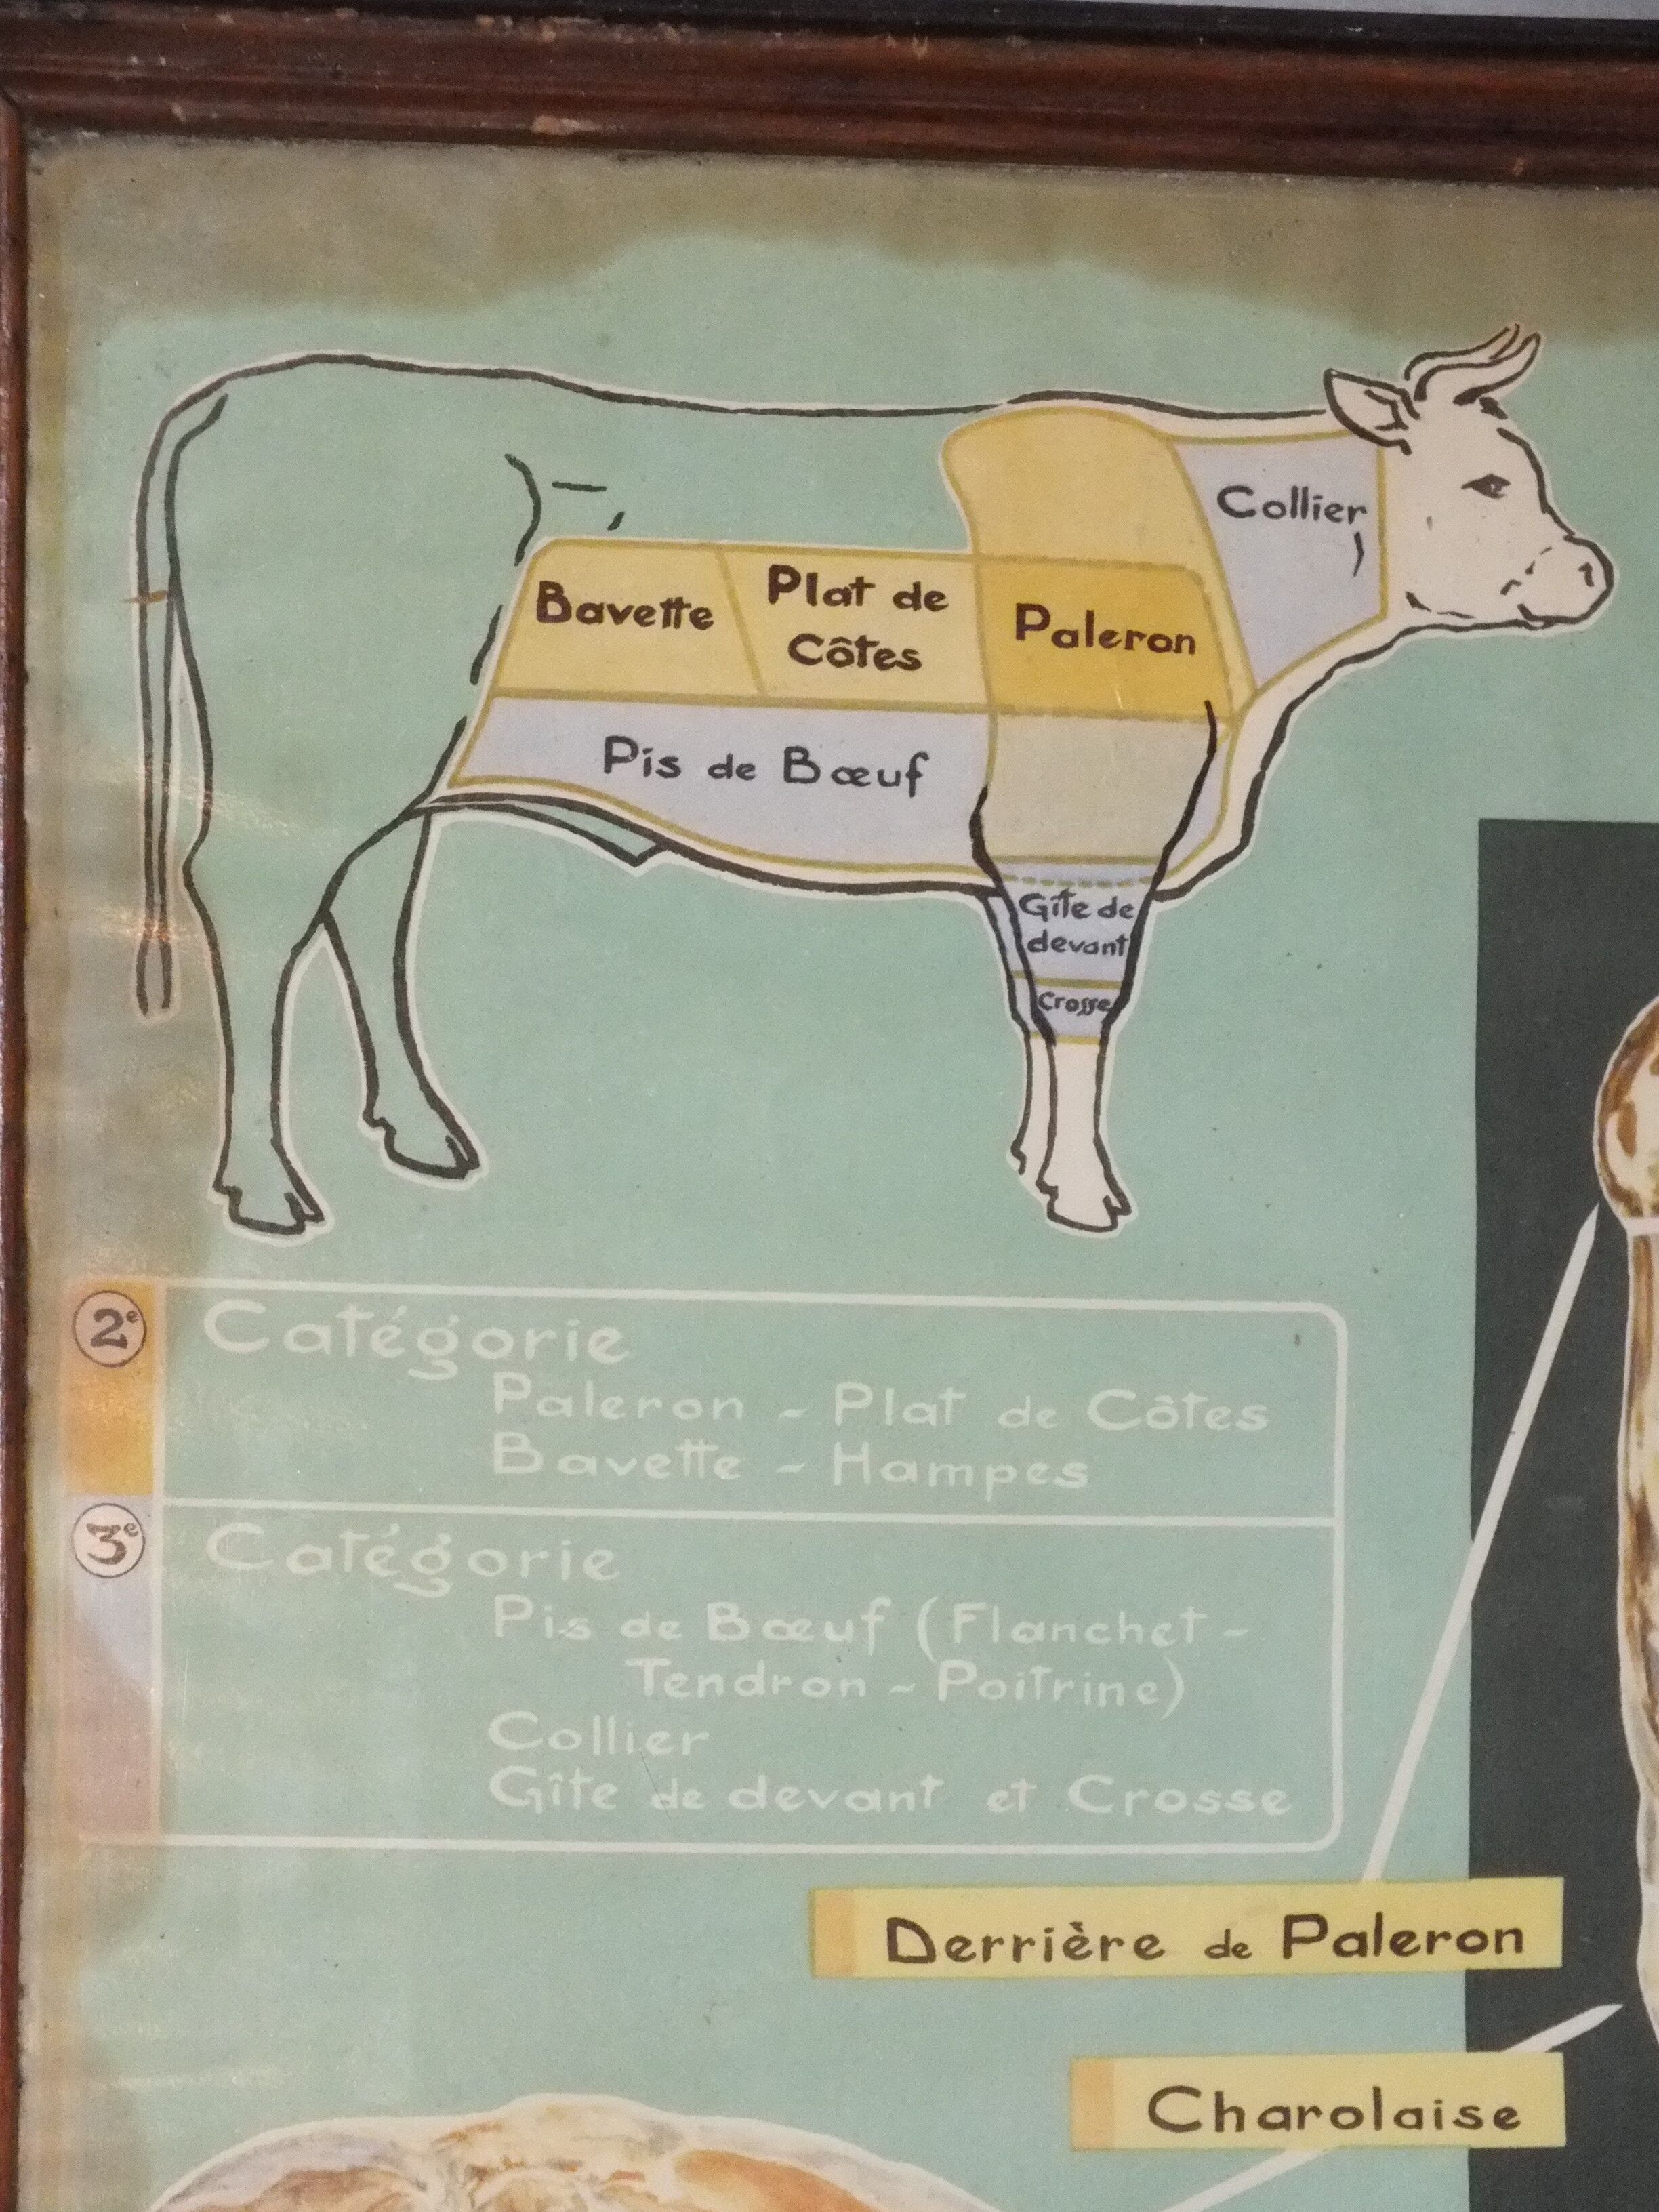 Collier
Bavette
Plat de
Côtes
Paleron
Pis de Bœuf
Gîte de
devant
Crosse
2e Catégorie
Paleron - Plat de Côtes
Bavette - Hampes
3e Catégorie
Pis de Bœuf (Flanchet -
Tendron - Poitrine)
Collier
Gîte de devant et Crosse
Derrière de Paleron
Charolaise